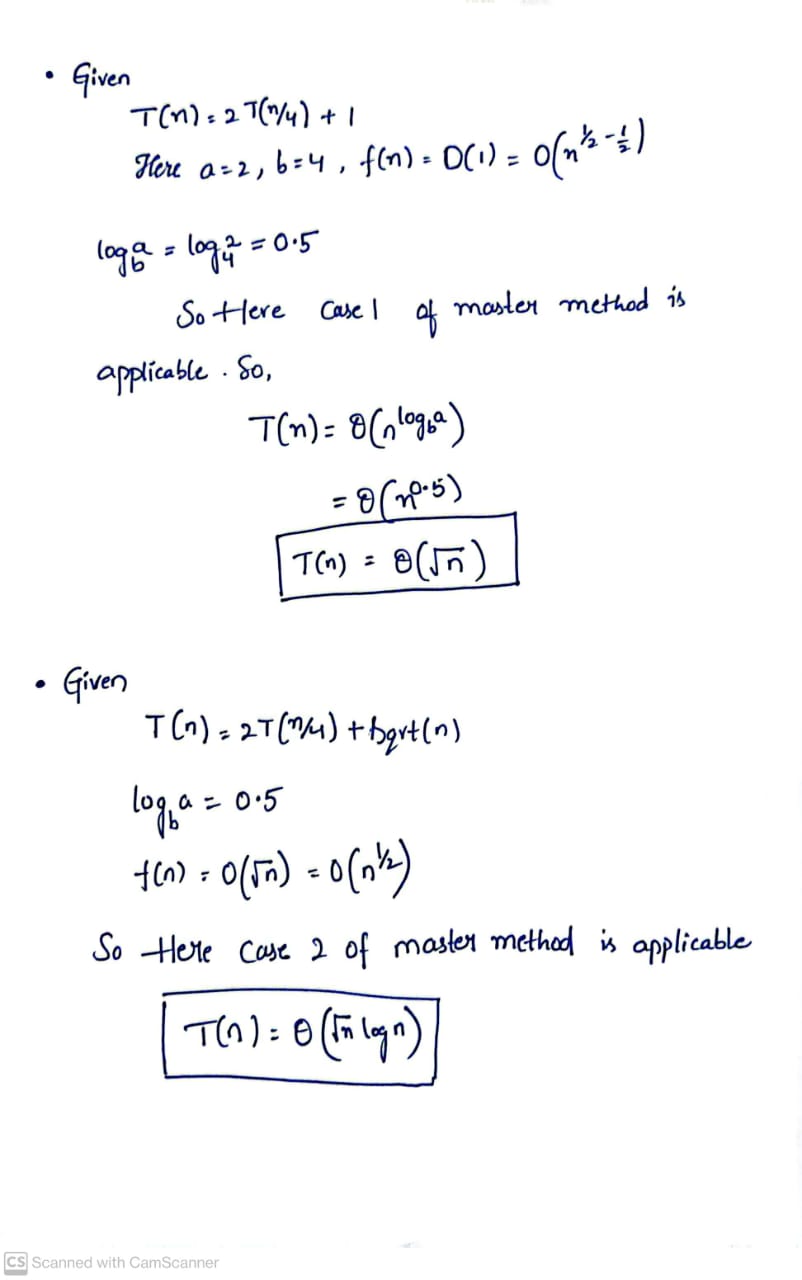 • Given
T(n) = 2 T(n/4) + 1
Here a = 2, b = 4, f(n) = O(1) = O(n^(1/2 - 1/2))
log_b a = log_4 2 = 0.5
So Here Case 1 of master method is
applicable. So,
T(n) = θ(n^(log_b a))
= θ(n^0.5)
T(n) = θ(√n)
• Given
T(n) = 2T(n/4) + sqrt(n)
log_b a = 0.5
f(n) = O(√n) = O(n^(1/2))
So Here Case 2 of master method is applicable
T(n) = θ(√n log n)
CS Scanned with CamScanner